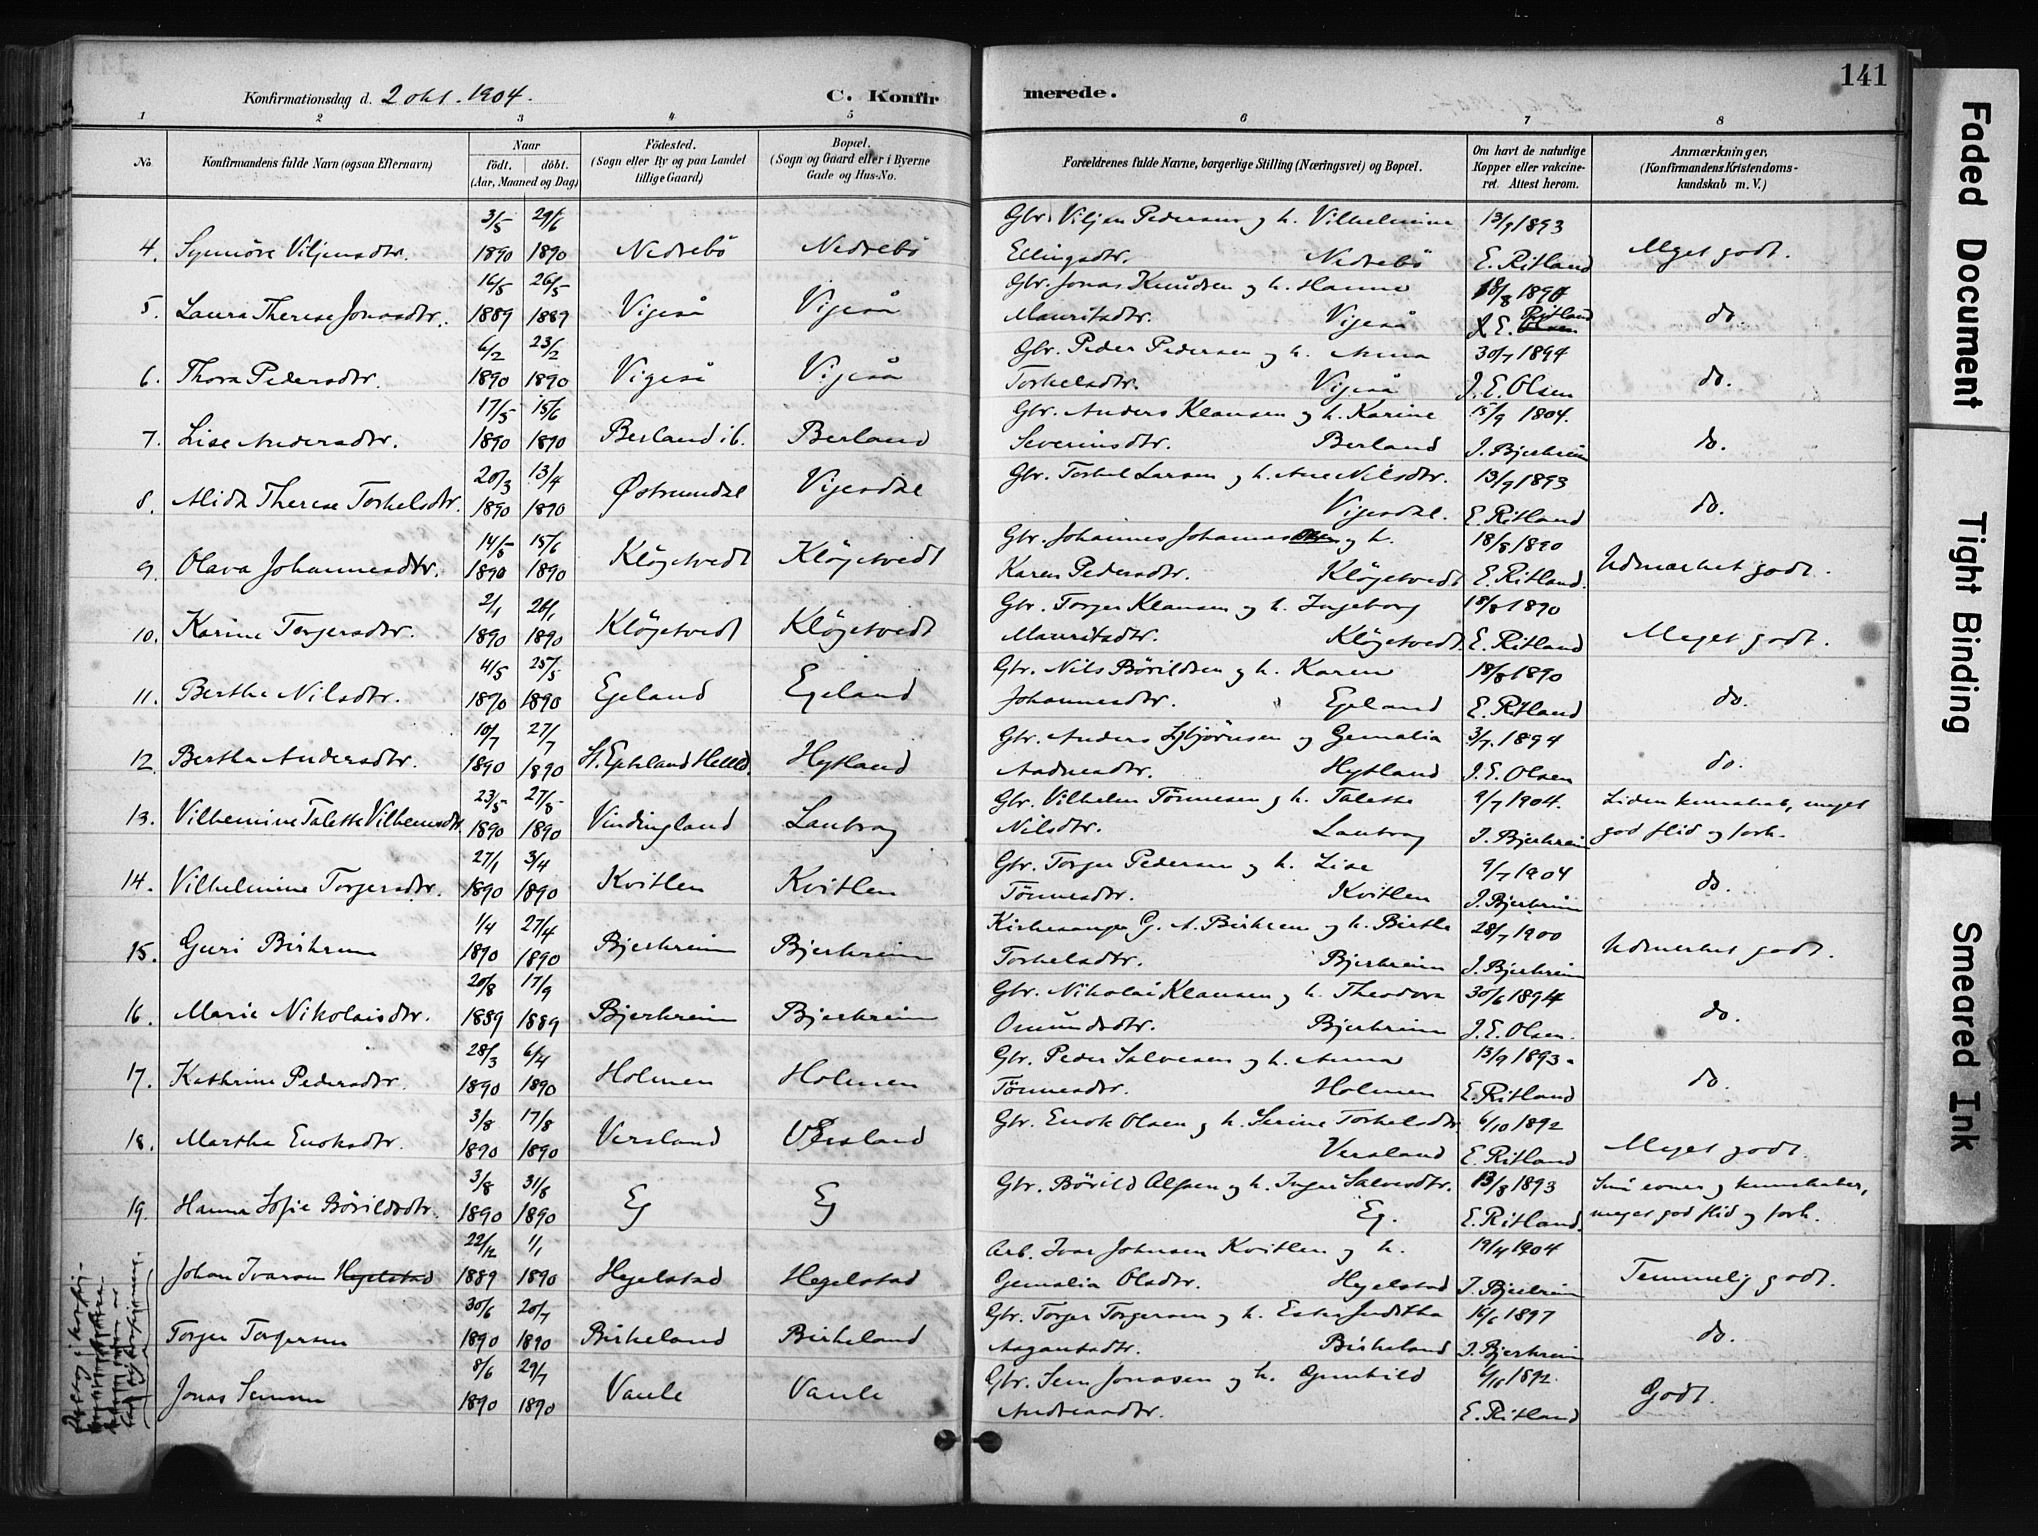 Konfirmationsdag d. 2 okt. 1904.
C. Konfirmerede.
141
1 2 3 4 5 6 7 8
No
Konfirmandens fulde Navn (ogsaa Efternavn)
Naar
födt. döbt.
(Aar, Maaned og Dag)
Födested.
(Sogn eller By og paa Landet
tillige Gaard)
Bopæl.
(Sogn og Gaard eller i Byerne
Gade og Hus-No.
Forældrenes fulde Navne, borgerlige Stilling (Næringsvei) og Bopæl.
Om havt de naturlige
Kopper eller vakcine-
ret. Attest herom.
Anmærkninger,
(Konfirmandens Kristendoms-
kundskab m. V.)
3/5 29/6 Gbr. Viljen Pedersen og h. Vilhelmine 13/9 1893
4. Synnöve Viljensdtr. 1890 1890 Nedrebö Nedrebö Ellingsdtr. Nedrebö E. Ritland Meget godt.
16/5 26/5 Gbr. Jonas Knudsen og h. Hanne 18/8 1890
5. Laura Therese Jonasdtr. 1889 1889 Vigeså Vigeså Mauritsdtr. Vigeså E. Ritland do.
6/2 23/2 Gbr. Peder Pedersen og h. Anna 30/7 1894
6. Thora Pedersdtr. 1890 1890 Vigeså Vigeså Torkelsdtr. Vigeså J. E. Olsen do.
17/5 15/6 Gbr. Anders Klausen og h. Karine 15/9 1804.
7. Lise Andersdtr. 1890 1890 Berland i b. Berland Severinsdtr. Berland J. Bjerkreim do.
20/3 13/4 Gbr. Torkel Larsen og h. Ane Nilsdtr. 13/9 1893
8. Alida Therese Torkelsdtr. 1890 1890 Østrumdal Vigesdal Vigesdal. E. Ritland do.
14/5 15/6 Gbr. Johannes Johannes og h. 18/8 1890
9. Olava Johannesdtr. 1890 1890 Klögetvedt Klögetvedt Karen Pedersdtr. Klögetvedt E. Ritland. Udmærket godt.
2/1 26/1 Gbr. Torger Klausen og h. Ingeborg 18/8 1890
10. Karine Torgersdtr. 1890 1890 Klögetvedt Klögetvedt Mauritsdtr. Klögetvedt. E. Ritland Meget godt.
4/5 25/5 Gbr. Nils Börildsen og h. Karen 18/8 1890
11. Berthe Nilsdtr. 1890 1890 Egeland Egeland Johannesdtr. Egeland E. Ritland do.
10/7 27/7 Gbr. Anders Asbjörnsen og Gemalia 3/7 1894
12. Bertha Andersdtr. 1890 1890 St. Epteland Helld. Hytland Aadnesdtr. Hytland J. E. Olsen do.
23/5 27/5 Gbr. Vilhelm Tönnesen og h. Talette 9/7 1904. Liden kunskab, meget
13. Vilhelmine Talette Vilhelmsdtr. 1890 1890 Vindingland Lautvag Nilsdtr. Lautvag J. Bjerkreim god flid og forh.
27/1 3/4 Gbr. Torger Pedersen og h. Lise 9/7 1904
14. Vilhelmine Torgersdtr. 1890 1890 Kvitlen Kvitlen Tönnesdtr. Kvitlen J. Bjerkreim do.
1/4 27/4 Kirkesanger G. A. Birkrem og h. Birthe 28/7 1900
15. Guri Birkrem 1890 1890 Bjerkreim Bjerkreim Torkelsdtr. Bjerkreim J. Bjerkreim Udmærket godt.
20/8 17/9 Gbr. Nikolai Klausen og h. Theodora 30/6 1894
16. Marie Nikolaisdtr. 1889 1889 Bjerkreim Bjerkreim Omundsdtr. Bjerkreim J. E. Olsen. do.
28/3 6/4 Gbr. Peder Salvesen og h. Anna 13/9 1893.
17. Kathrine Pedersdtr. 1890 1890 Holmen Holmen Tönnesdtr. Holmen E. Ritland do.
3/8 17/8 Gbr. Enok Olsen og h. Serine Torkelsdtr. 6/10 1892
18. Martha Enoksdtr. 1890 1890 Versland Versland Versland E. Ritland Meget godt.
3/8 31/8 Gbr. Börild Alfsen og h. Inger Salvesdtr. 13/8 1893 Små evner og kunskaber,
19. Hanna Sofie Börildsdtr. 1890 1890 Eg Eg Eg. E. Ritland. meget god flid og forh.
22/12 1/1 Arb. Ivar Johnsen Kvitlen og h. 19/4 1904
Johan Ivarsen Hegelstad 1889 1890 Hegelstad Hegelstad Gemalia Olsdtr. Hegelstad J. Bjerkreim Temmelig godt.
30/6 20/7 Gbr. Torger Torgersen og h. Ester Juditha 16/6 1897
Torger Torgersen 1890 1890 Birkeland Birkeland Aaganstsdtr. Birkeland J. Bjerkreim do.
8/6 29/7 Gbr. Sem Jonassen og h. Gunhild 1892.
Jonas Semsen 1890 1890 Vaule Vaule Andreasdtr. E. Ritland Godt.
Faded Document
Tight Binding
Smeared Ink